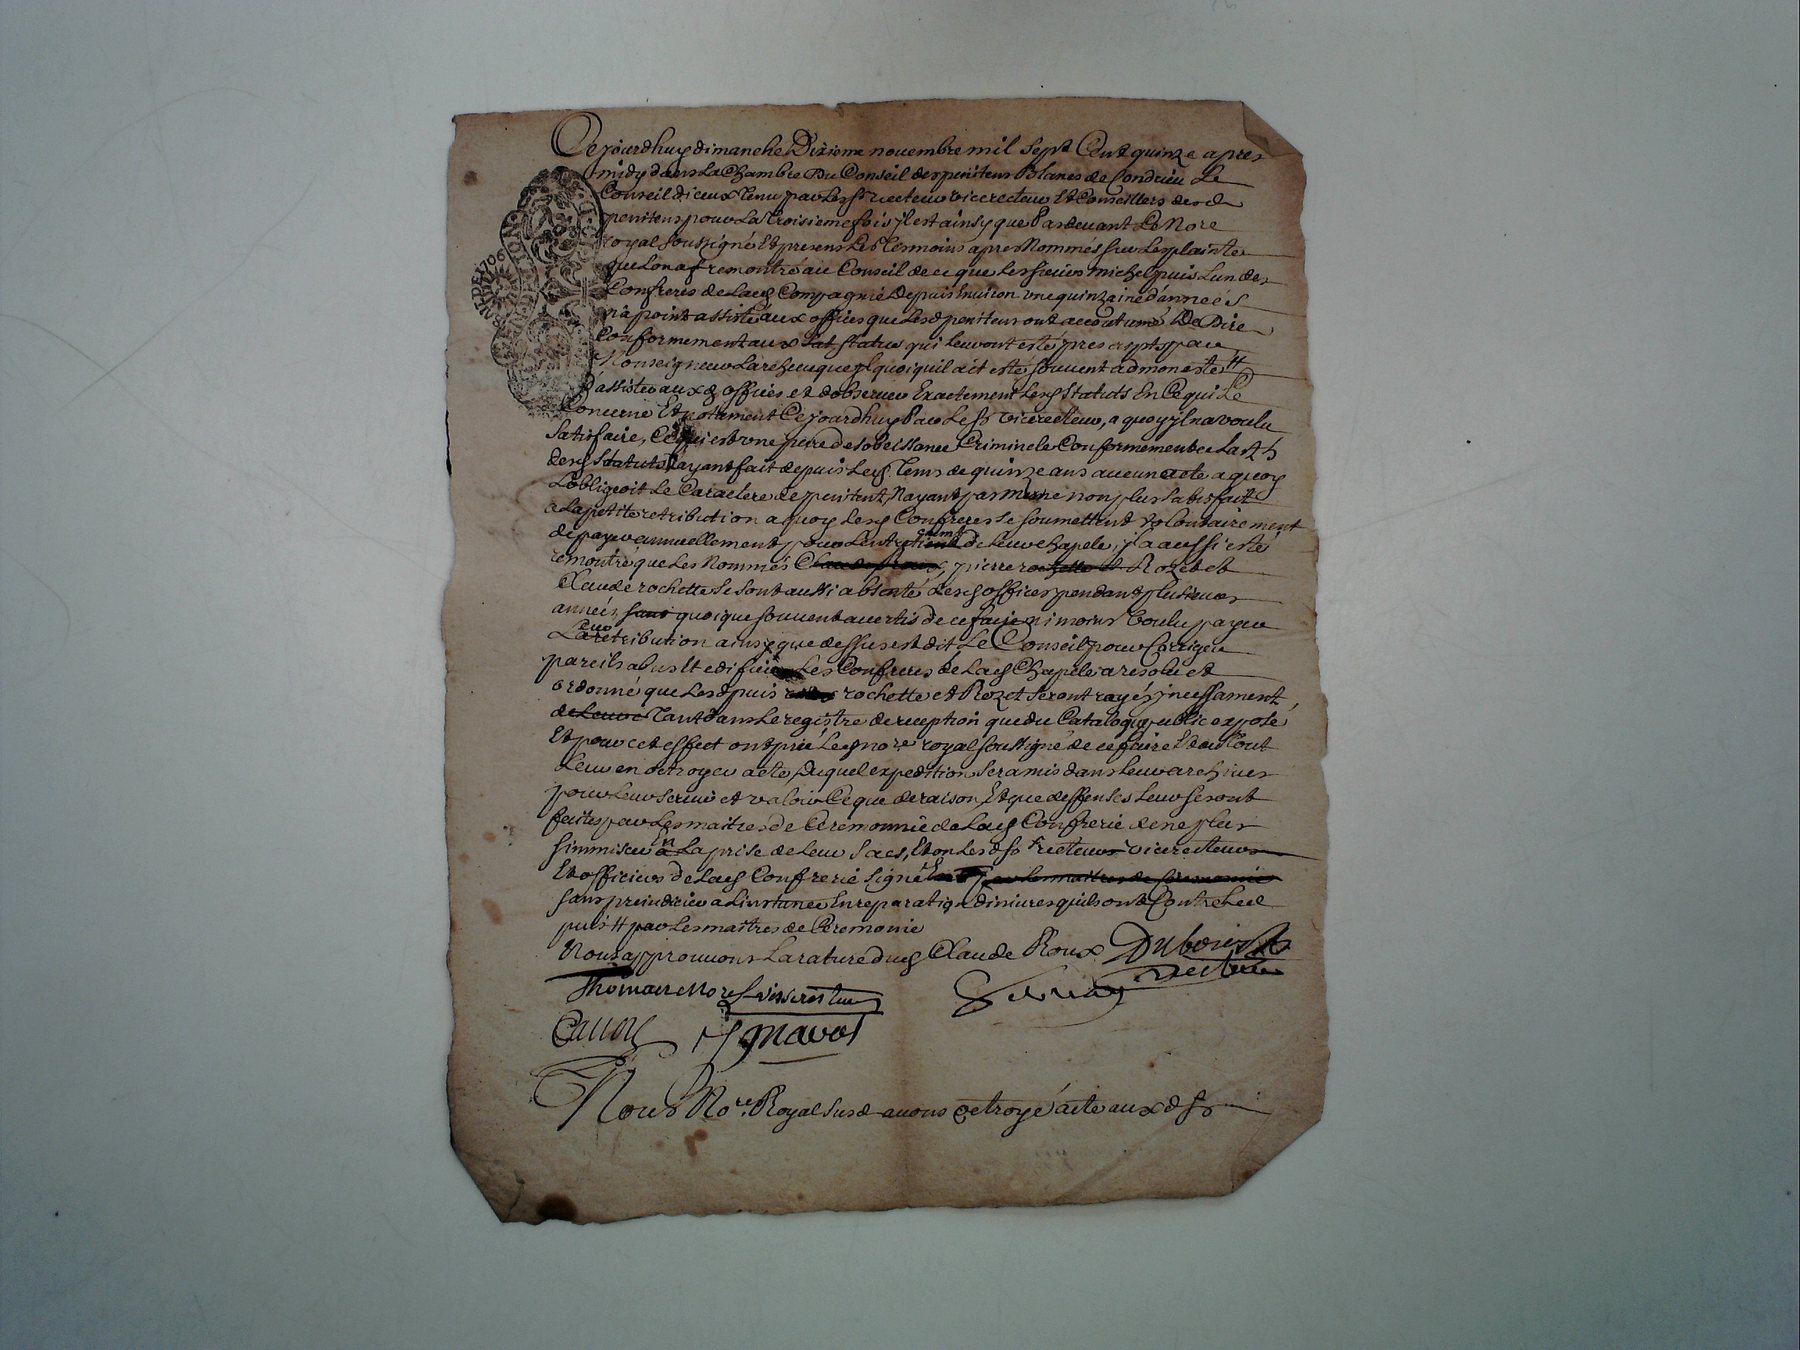 Cejourdhuy dimanche Dixieme novembre mil sept Cent quinze apres
midy dans La Chambre Du Conseil des penitens Blancs de Condrieu Le
Conseil diceux Tenu par Les srs recteur vicerecteur Et Conseillers desd
penitens pour La troisieme fois yl est ainsy que Pardevant Le Nore
royal soussigné Et presens Les Tesmoins apres Nommés sur Les plaintes
que Lon a remontré au Conseil de ce que Les sieur michel puis Lun des
Confreres de Lad Compagnie Depuis Environ une quinzaine d'années
n'a point assisté aux offices que Lesd penitens ont accoutumé De Dire
Conformement aux statuts qui leur ont esté prescripts par
Monseigneur Larchevuque quoiquil ait esté souvent admonesté
d'assister aux d offices et dobserver Exactement Lesd Statuts En Ce qui Le
Concerne Et notament Cejourdhuy Par Le sr vicerecteur, a quoy yl na voulu
Satisfaire, Ce qui est une pure desobeissance Criminele Conformement a Lart h
desd Statuts Nayant fait depuis Led Tems de quinze ans aucun acte a quoy
Lobligeoit Le Caractere de penitent, Nayant pas mesme non plus satisfait
a La petite retribution a quoy Lesd Confreres se soumettent volontairement
de payer annuellement pour Lentretienemt de Leur chapele, yl a aussi esté
remontré que Les Nommés pierre Rozet et
Claude rochette se sont aussi absenté desd offices pendant plusieurs
années, sans quoique souvent avertis de ce faire ni moins Voulu payer
La retribution ainsy que dessus est dit Le Conseil pour Corriger
pareils abus Et edifier Les Confreres de Lad Chapele a resolu et
ordonné que Lesd puis rochette et Rozet seront rayés incessament,
de Leur Tant dans Le registre de reception que du Catalogue public exposé,
Et pour cet effect ont prié Led nore royal soussigné de ce faire Et du tout
Leur en octroyer acte, Duquel expedition sera mis dans Leur archives
pour Leur servir et valoir Ce que de raison, Et que deffenses Leur seront
faites par Les maitres de Ceremonnie de Lad Confrerie de ne plus
simmiscer en La prise de Leur Sacs, Et ont Lesd srs recteur vicerecteur
Et officiers de Lad Confrerie signé par Les maitres de Ceremonie
sans preiudicier a Linstance En reparation diniures quils ont Contre Led
puis # par Les maitres de Ceremonie
Nous approuvons La rature dud Claude Roux Dubouis
recteur
Thomas Morel visserecteur
Cauon Gnavol
Nous Nore Royal Susd avons octroyé acte aux d srs